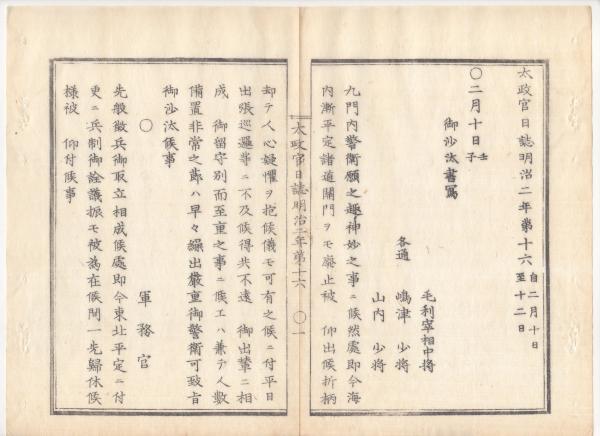 太政官日誌明治二年第十六 自二月十日 至十二日
〇二月十日 壬子
御沙汰書寫
毛利宰相中将
各通 嶋津少将
山内少将
九門内警衛願之趣神妙之事ニ候然處即今海
内漸平定諸道關門ヲモ廢止被 仰出候折柄
太政官日誌明治二年第十六 〇一
却テ人心疑懼ヲ抱候儀モ可有之候ニ付平日
出張巡邏等ニ不及候得共不遠 御出輦ニ相
成 御留守別而至重之事ニ候エハ兼テ人數
備置非常之節ハ早々繰出嚴重御警衛可致旨
御沙汰候事
〇 軍務官
先般徴兵御取立相成候處即今東北平定ニ付
更ニ兵制御詮議振モ被爲在候間一先歸休候
様被 仰付候事